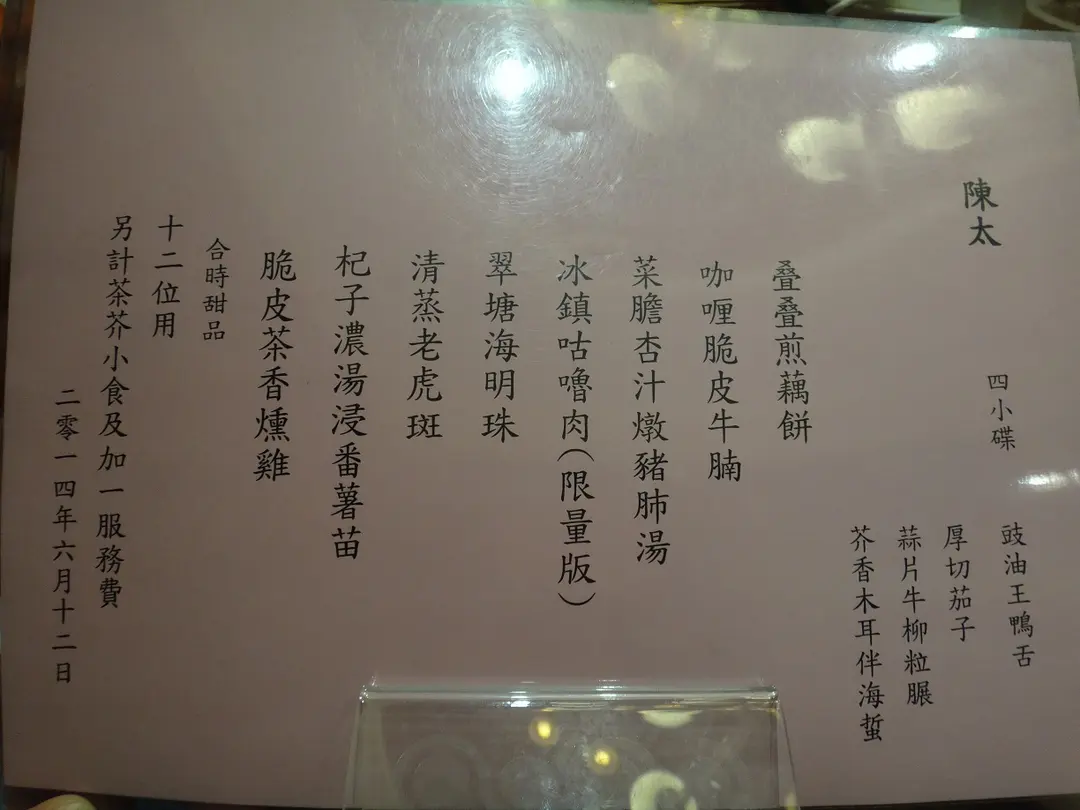 陳太
四小碟
豉油王鴨舌
厚切茄子
蒜片牛柳粒𦟌
芥香木耳伴海蜇
叠叠煎藕餅
咖喱脆皮牛腩
菜膽杏汁燉豬肺湯
冰鎮咕嚕肉(限量版)
翠塘海明珠
清蒸老虎斑
杞子濃湯浸番薯苗
脆皮茶香燻雞
合時甜品
十二位用
另計茶芥小食及加一服務費
二零一四年六月十二日